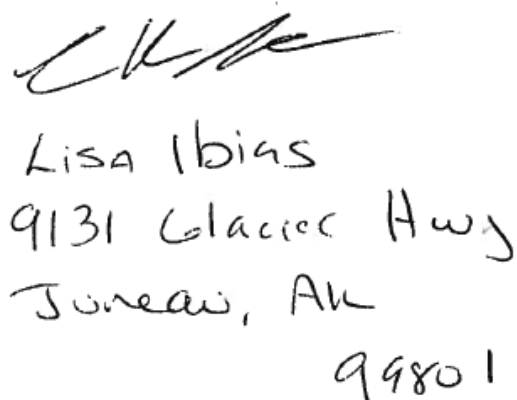 Lisa Ibias
9131 Glacier Hwy
Juneau, AK
99801